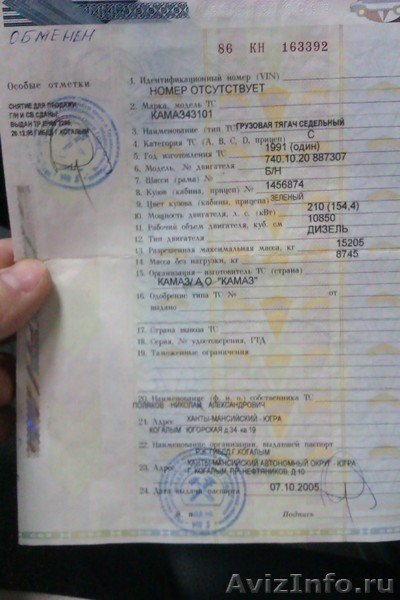 ОБМЕНЕН
86 КН 163392
Особые отметки
СНЯТИЕ ДЛЯ ПРОДАЖИ
Г/Н И СВ. СДАНЫ
1. Идентификационный номер (VIN)
НОМЕР ОТСУТСТВУЕТ
2. Марка, модель ТС
КАМАЗ43101
3. Наименование (тип ТС) ГРУЗОВАЯ ТЯГАЧ СЕДЕЛЬНЫЙ
4. Категория ТС (А, В, С, D, прицеп) С
5. Год изготовления ТС 1991 (один)
6. Модель, № двигателя 740.10.20 887307
7. Шасси (рама) № Б/Н
8. Кузов (кабина, прицеп) № 1456874
9. Цвет кузова (кабины, прицепа) ЗЕЛЕНЫЙ
10. Мощность двигателя, л. с. (кВт) 210 (154,4)
11. Рабочий объем двигателя, куб. см 10850
12. Тип двигателя ДИЗЕЛЬ
13. Разрешенная максимальная масса, кг 15205
14. Масса без нагрузки, кг 8745
15. Организация – изготовитель ТС (страна)
КАМАЗ/ А,О "КАМАЗ"
16. Одобрение типа ТС № от
выдано
17. Страна вывоза ТС
18. Серия, № удостоверения, ГТД
19. Таможенные ограничения
20. Наименование (ф. и. о.) собственника ТС
ПОЛЯКОВ НИКОЛАЙ АЛЕКСАНДРОВИЧ
21. Адрес ХАНТЫ-МАНСИЙСКИЙ - ЮГРА
КОГАЛЫМ ЮГОРСКАЯ д.34 кв.19
22. Наименование организации, выдавшей паспорт
РЭК ГИБДД Г.КОГАЛЫМ
23. Адрес ХАНТЫ-МАНСИЙСКИЙ АВТОНОМНЫЙ ОКРУГ - ЮГРА
Г.КОГАЛЫМ, ПР. НЕФТЯНИКОВ, Д.10
24. Дата выдачи паспорта 07.10.2005
Подпись
AvizInfo.ru